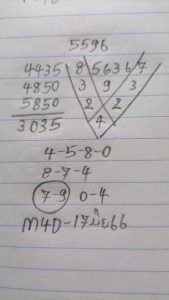 5596
4435 8 5 6 3 6 7
4850 3 9 3
5850 2 2
3035 4
4-5-8-0
8-7-4
7-9 0-4
M4D-17มิย66